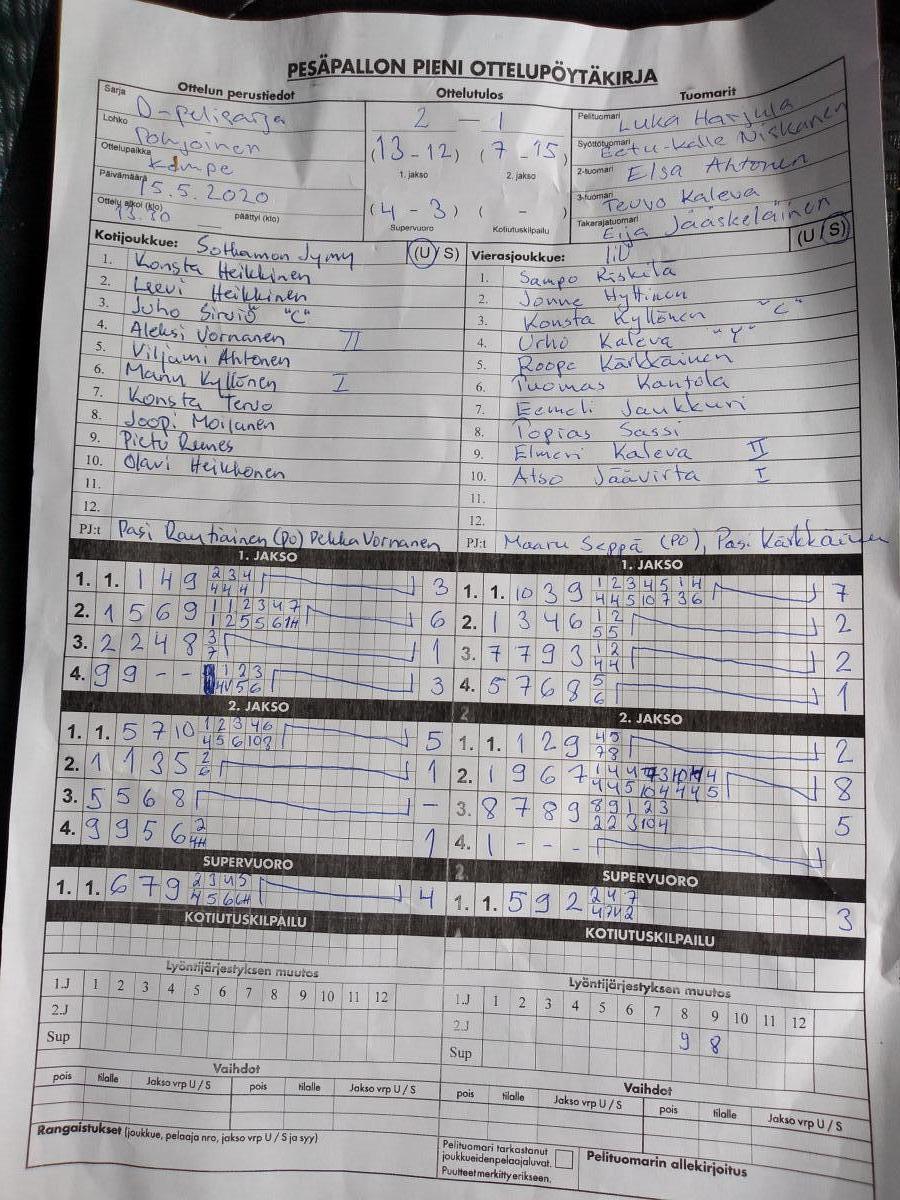 PESÄPALLON PIENI OTTELUPÖYTÄKIRJA
Ottelun perustiedot
Sarja D-pelisarja
Lohko Pohjoinen
Ottelupaikka Kampe
Päivämäärä 15.5.2020
Ottelu alkoi (klo) 13.30 päättyi (klo)
Ottelutulos
2 - 1
(13 - 12) (7 - 15)
1. jakso 2. jakso
(4 - 3) ( - )
Supervuoro Kotiutuskilpailu
Tuomarit
Pelituomari Luka Harjula
Syöttötuomari Eetu-Kalle Niskanen
2-tuomari Elsa Ahtonen
3-tuomari Teuvo Kaleva
Takarajatuomari Eija Jääskeläinen
Kotijoukkue: Sotkamon Jymy (U/S)
1. Konsta Heikkinen
2. Leevi Heikkinen
3. Juho Sirviö "C"
4. Aleksi Vornanen II
5. Viljami Ahtonen
6. Manu Kyllönen I
7. Konsta Tervo
8. Joopi Moilanen
9. Pietu Reenes
10. Olavi Heikkonen
11.
12.
PJ:t Pasi Rautiainen (PO) Pekka Vornanen
Vierasjoukkue: (U/S)
1. Sampo Riskilä
2. Jonne Hyttinen
3. Konsta Kyllönen "C"
4. Urho Kaleva "Y"
5. Roope Kärkkäinen
6. Tuomas Kantola
7. Eemeli Jaukkuri
8. Topias Sassi
9. Elmeri Kaleva II
10. Atso Jäävirta I
11.
12.
PJ:t Maaru Seppä (PO), Pasi Kärkkäinen
1. JAKSO
1. 1. 1 4 9 2 3 4 3
4 4 4
2. 1 5 6 9 1 1 2 3 4 7 6
1 2 5 5 6 1H
3. 2 2 4 8 3 1
7
4. 9 9 - - 1 2 3 3
4V 5 6
2. JAKSO
1. 1. 5 7 10 1 2 3 4 6 5
4 5 6 10 8
2. 1 1 3 5 2 1
6
3. 5 5 6 8 -
4. 9 9 5 6 2 1
4H
SUPERVUORO
1. 1. 6 7 9 2 3 4 5 4
4 5 6 6H
KOTIUTUSKILPAILU
1. JAKSO
1. 1. 10 3 9 1 2 3 4 5 1 4 7
4 4 5 10 7 3 6
2. 1 3 4 6 1 2 2
5 5
3. 7 7 9 3 1 2 2
4 4
4. 5 7 6 8 5 1
6
2. JAKSO
1. 1. 1 2 9 4 5 2
7 8
2. 1 9 6 7 8
3. 8 7 8 9 8 9 1 2 3 5
2 2 3 10 4
4. 1 - - -
SUPERVUORO
1. 1. 5 9 2 2 4 7 3
4 7V 2
KOTIUTUSKILPAILU
Lyöntijärjestyksen muutos
1.J 1 2 3 4 5 6 7 8 9 10 11 12
2.J
Sup
Lyöntijärjestyksen muutos
1.J 1 2 3 4 5 6 7 8 9 10 11 12
2.J 9 8
Sup
Vaihdot
pois tilalle Jakso vrp U / S pois tilalle Jakso vrp U / S
Vaihdot
pois tilalle Jakso vrp U / S pois tilalle Jakso vrp U / S
Rangaistukset (joukkue, pelaaja nro, jakso vrp U / S ja syy)
Pelituomari tarkastanut
joukkueidenpelaajaluvat.
Puutteet merkitty erikseen.
Pelituomarin allekirjoitus